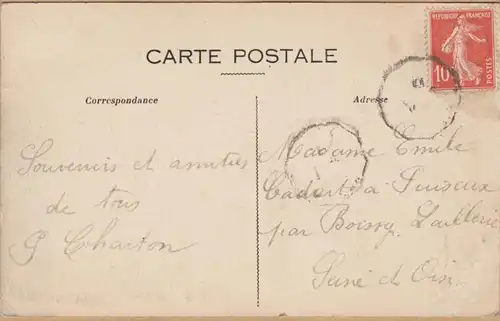 CARTE POSTALE
REPUBLIQUE FRANÇAISE
10
POSTES
Correspondance
Adresse
Souvenirs et amitiés
de tous
G Charton
Madame Emile
à Puiseux
par Boissy Laillerie
Seine et Oise